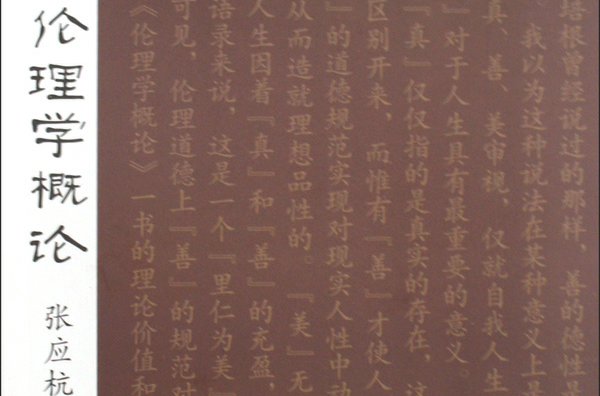 伦理学概论
张应杭
培根曾经说过的那样，善的德性是
。我以为这种说法在某种意义上是
真、善、美审视，仅就自我人生
』对于人生具有最重要的意义。
『真』仅仅指的是真实的存在，这
区别开来，而惟有『善』才使人
』的道德规范实现对现实人性中动
从而造就理想品性的。『美』无
人生因着『真』和『善』的充盈，
语录来说，这是一个『里仁为美』
可见，伦理道德上『善』的规范对
《伦理学概论》一书的理论价值和